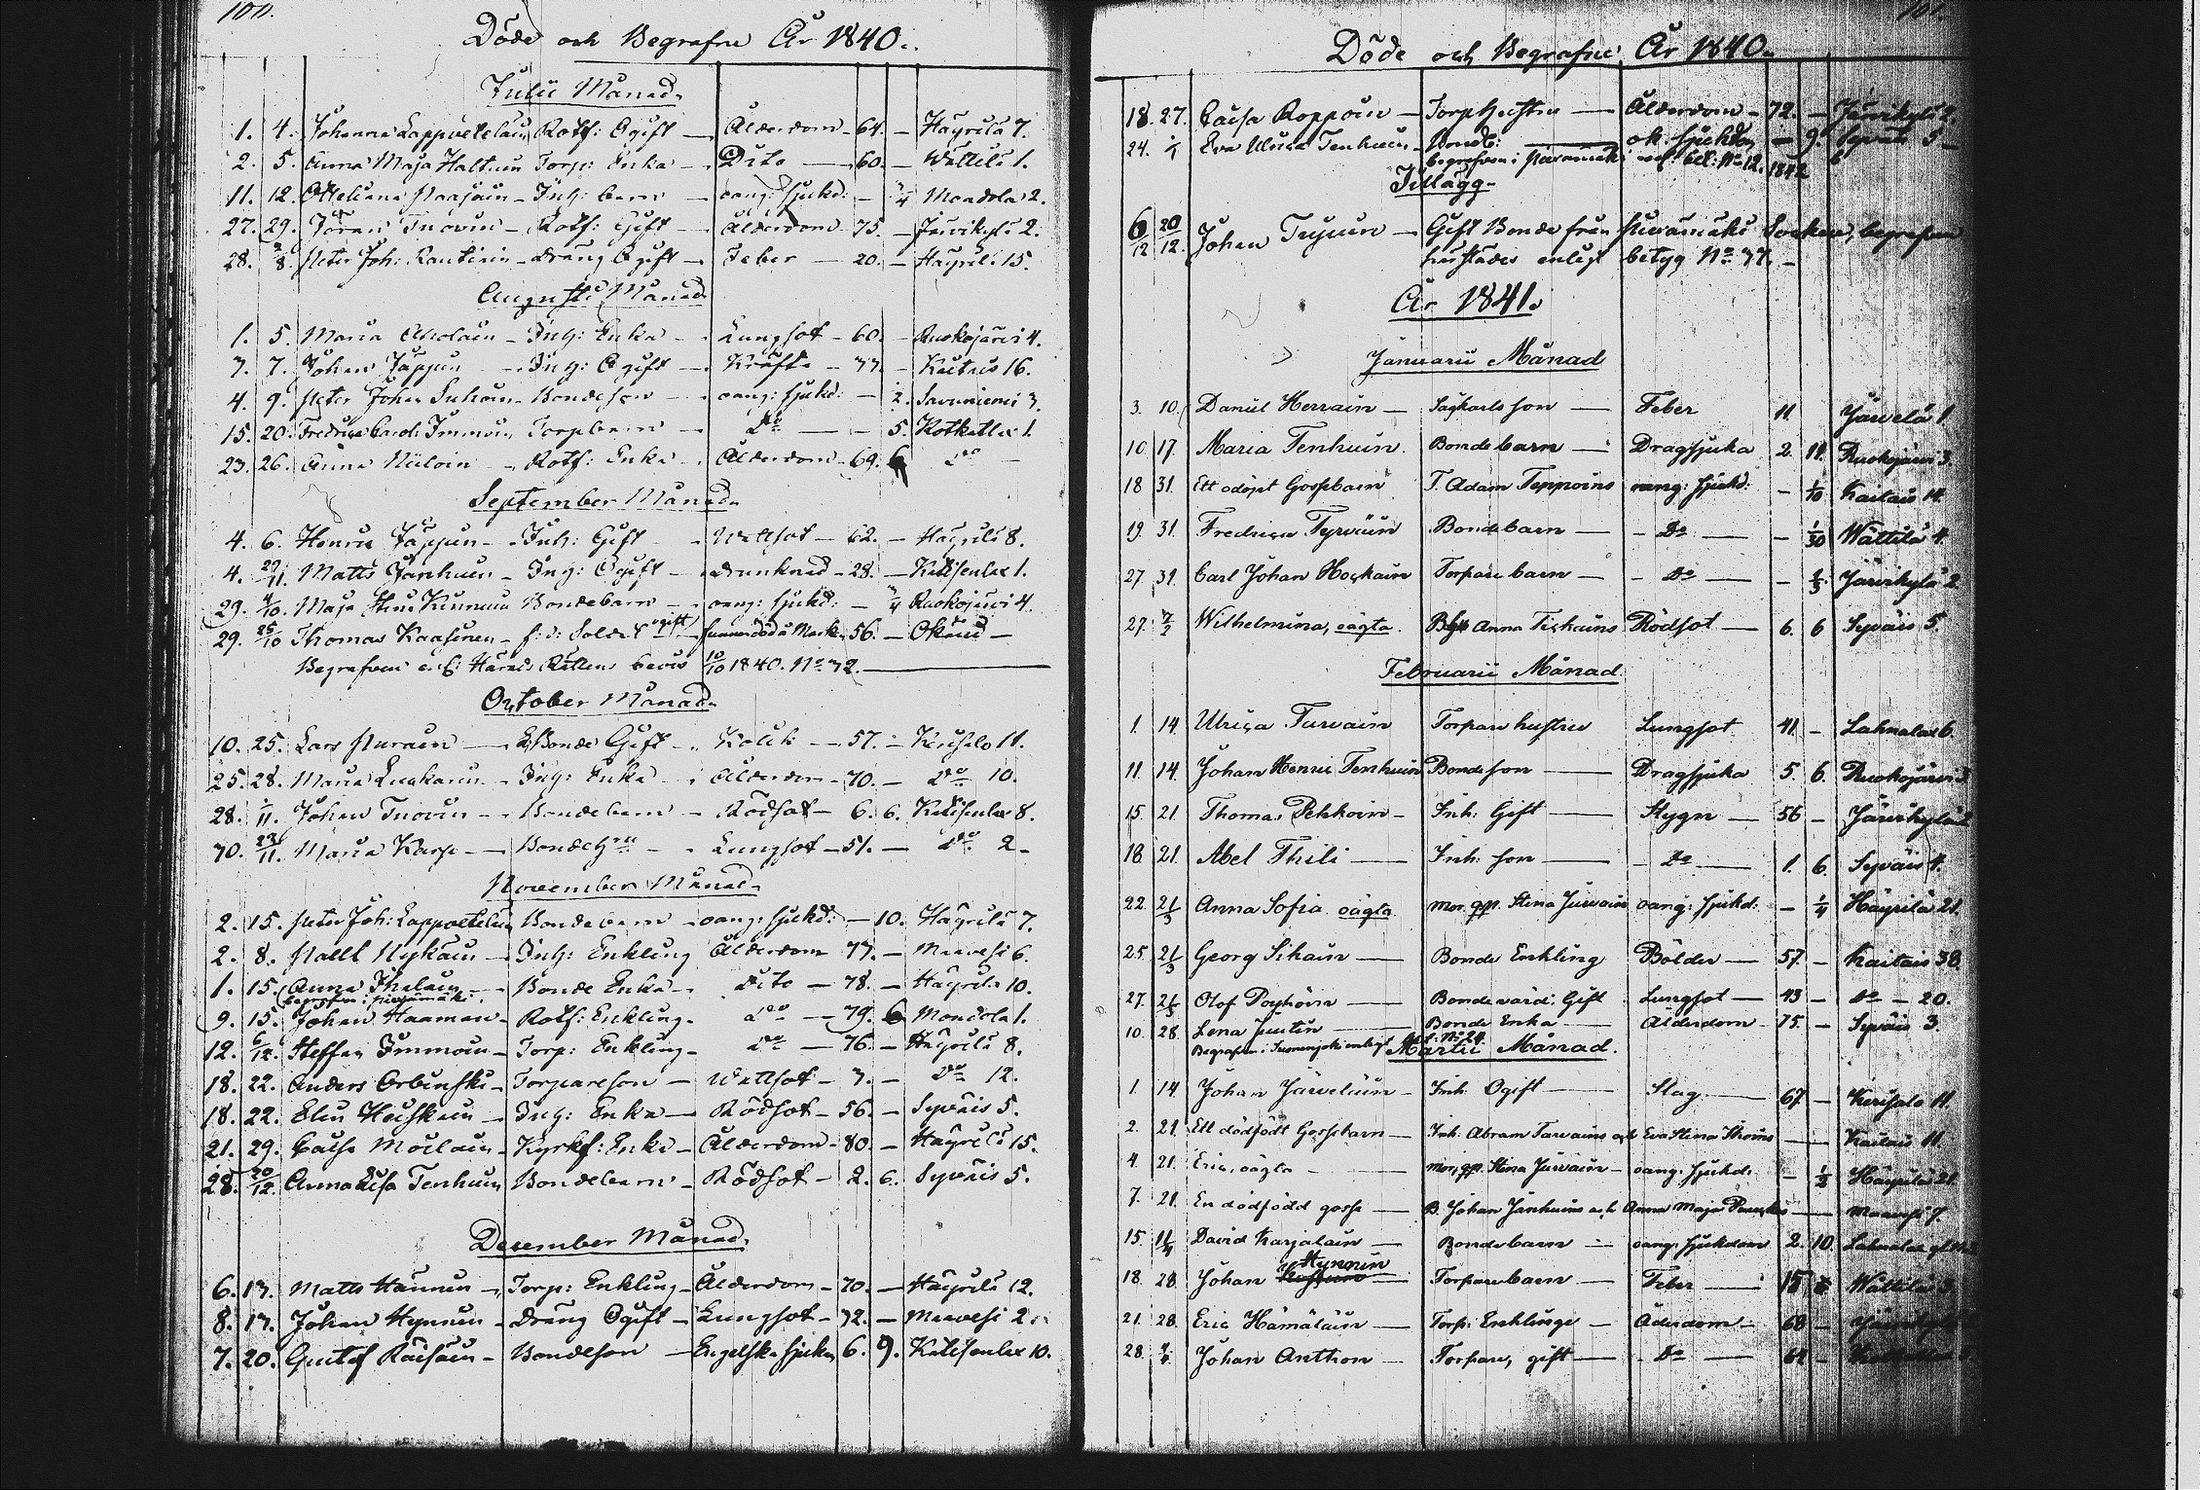 100.
Döde och Begrafne År 1840.
Julii Månad.
1. 4. Johannes Lappvetelain Rotf: Ogift — Ålderdom — 64. — Häyrilä 7.
2. 5. Anna Maja Haltuin Torp: Enka — Dito — 60. — Wättilä 1.
11. 12. Inh: barn — oang: sjukd: — 3/4 Mondola 2.
27. 29. Göran Inovin — Rotf: Gift — Ålderdom 75. — Järvikylä 2.
28. 2/8. Peter Joh: Rautiain — Dräng Ogift — Feber — 20. — Häyrilä 15.
Augusti Månad
1. 5. Maria — Inh: Enka — Lungsot — 60. — Ruokojärvi 4.
3. 7. Johan Jäppin — Inh: Ogift — Kräfta — 33. — Kaitais 16.
4. 9. Peter Johan Inhoin — Bondeson — oang: sjukd: — 2. Savuniemi 3.
15. 20. Fredrica Carol: Immoin Torpebarn — Do — — 5. Kotkatlax 1.
23. 26. Anna Niiloin — Rotf: Enka — Ålderdom — 69. 6 Do —
September Månad.
4. 6. Henric Jäppin — Inh: Gift — Wattsot — 62. — Häyrilä 8.
4. 29/11. Matts Janhuin — Inh: Ogift — drunknad — 28. — Kattsenlax 1.
29. 4/10. Maja Stina Kinnuin Bondebarn — oang: sjukd: — 3/4 Ruokojärvi 4.
29. 25/10 Thomas Kaasinen — f: d: Soldat ogift funnen död å Marken 56. — Okänd —
Begrafven e. l: Härads Rättens bevis 10/10 1840. No 32.
October Månad.
10. 25. Lars Purain — Bonde Gift — Kolik — 57. — Kerisalo 11.
25. 28. Maria Laukarin — Inh: Enka — Ålderdom — 70. — Do 10.
28. 1/11. Johan Inovin — Bondebarn — Rödsot — 6. 6. Kattsenlax 8.
30. 22/11. Maria Karp — Bondeh:ru — Lungsot — 51. — Do 2 —
November Månad.
2. 15. Peter Joh: Lappvetelain Bondebarn — oang: sjukd: — 10. Häyrilä 7.
2. 8. Pålll Nykäin — Inh: Enkling Ålderdom 77. — Maavesi 6.
1. 15. Anna Ihalain — Bonde Enka — Dito — 78. — Häyrilä 10.
begrafven i Piexämäki.
9. 15. Johan Haaman — Rotf: Enkling — Do — 79. 6 Mondola 1.
12. 6/12. Steffan Immoin — Torp: Enkling — Do — 76. — Häyrilä 8.
18. 22. Anders Orbinski — Torpareson — Wattsot — 3. — Do 12.
18. 22. Elin Heiskain — Inh: Enka — Rödsot — 56. — Syväis 5.
21. 29. Caisa Moilain — Kyrkf: Enka — Ålderdom — 80. — Häyrilä 15.
28. 20/12. Anna Lisa Tenhuin Bondebarn — Rödsot — 2. 6. Syväis 5.
December Månad.
6. 13. Matts Hännin — Torp: Enkling — Ålderdom — 70. — Häyrilä 12.
8. 13. Johan Hynnin — Dräng Ogift — Lungsot — 32. — Maavesi 2.
7. 20. Gustaf Räisäin — Bondeson — Engelska sjukan 6. 9. Kattsenlax 10.
101.
Döde och Begrafne År 1840.
18. 27. Caisa Roppoin — Torp Hustru — Ålderdom — 72. — Järvikylä 2.
24. 1/1 Eva Ulrica Tenhuin — Bondeb: ok. sjukdom — 9. Syväis 5 —
begrafven i Piexämäki enl: bet: No 12. 1842
Tillägg.
6/12 20/12. Johan Tujuin — Gift Bonde från Piexämäki Socken, begrafven
härstädes enligt betyg No 37. —
År 1841.
Januarii Månad
3. 10. Daniel Herrain — Sågkarlsson — Feber 11 Järvelä 1
10. 17. Maria Tenhuin. Bondebarn — Dragsjuka 2. 11. Ruokojärvi 3.
18 31. Ett odöpt Gossebarn T. Adam Teppoins oang: sjukd: — 1/10 Kaitais 14.
19. 31. Fredrica Tyrväin Bondebarn — Do — 1/30 Wättilä 4.
27 31. Carl Johan Hockain Torparebarn — Do — 2/3. Järvikylä 2
27. 7/2 Wilhelmina, oägta. Anna Tiihkains Rödsot — 6. 6 Syväis 5.
Februarii Månad
1. 14. Ulrica Turvain Torpare hustru Lungsot 41 — Lahnalax 6.
11. 14. Johan Henric Tenhuin Bondeson — Dragsjuka 5. 6. Ruokojärvi 3
15. 21. Thomas Pehkoin — Inh. Gift — Stygn — 56 — Järvikylä 2
18 21. Abel Thili — Inh: son — Do — 1. 6. Syväis 4.
22. 21/3 Anna Sofia oägta mor. qp. Stina Jurvain oang: sjukd: — 1/4 Häyrilä 21.
25. 21/3 Georg Sihain — Bonde Enkling Bölder — 57 — Kaitais 38
27. 21/3 Olof Poyhöin — Bonde värd: Gift Lungsot — 43 — Do — 20.
10. 28. Lena Juutin — Bonde Enka — Ålderdom — 75. — Syväis 3.
Begrafven i enligt bet: No 29.
Martii Månad.
1. 14. Johan Järveläin — Inh Ogift — Slag — 67 — Kerisalo 11.
2. 21. Ett dödfödt Gossebarn — Inh. Abram Tarvains och Eva Stina — Kaitais 11
4. 21. Eric, oägta — mor. qp. Stina Jurvain — oang: sjukd: — 1/2 Häyrilä 21
7. 21. En dödfödd gosse — B. Johan Janhuins och Anna Maja — Maavesi 7.
15. 11/4 David Karjalain — Bondebarn — oang: sjukdom 2. 10. Lahnalax
18. 28. Johan Hynnin — Torparebarn — Feber — 15 Wättilä 3
21. 28. Eric Hämäläin — Torp: Enklinge — Åderdom — 68 — Järvikylä
28. 4/4 Johan Anthon — Torpare, gift — Do — 64 —